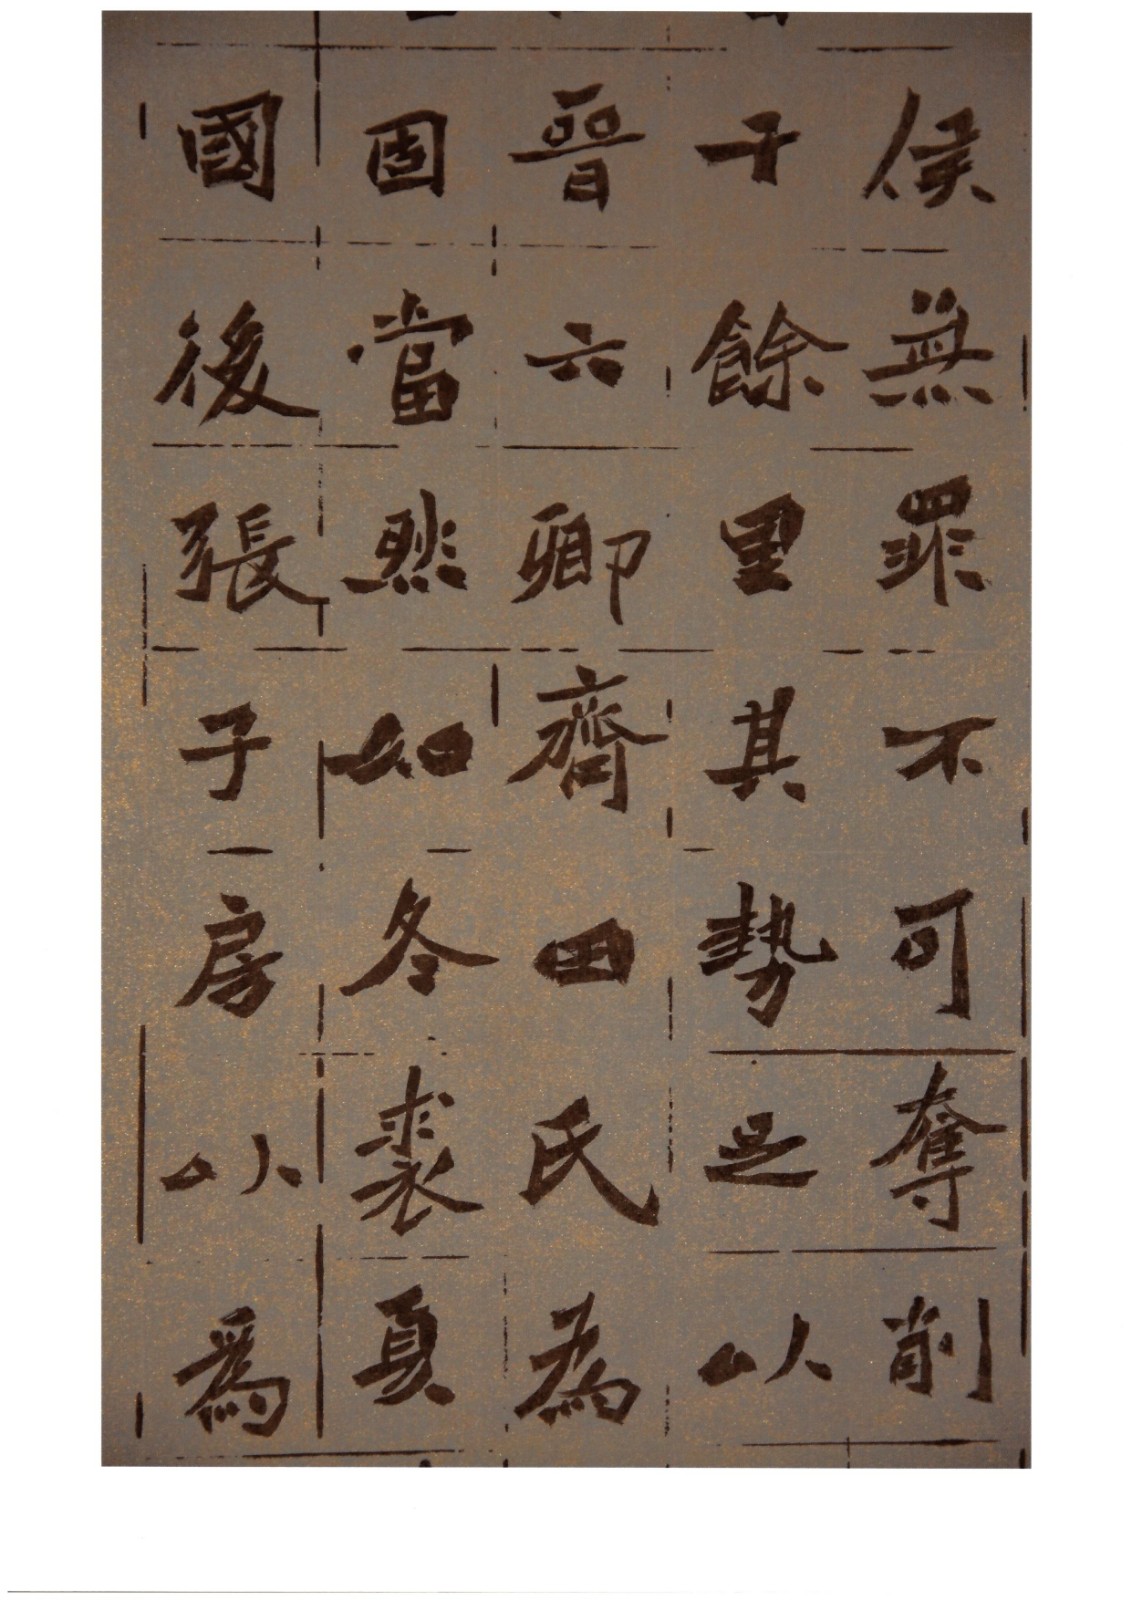 侯無罪不可奪削
千餘里其勢足以
晉六卿齊田氏為
固當然如冬裘夏
國後張子房以為